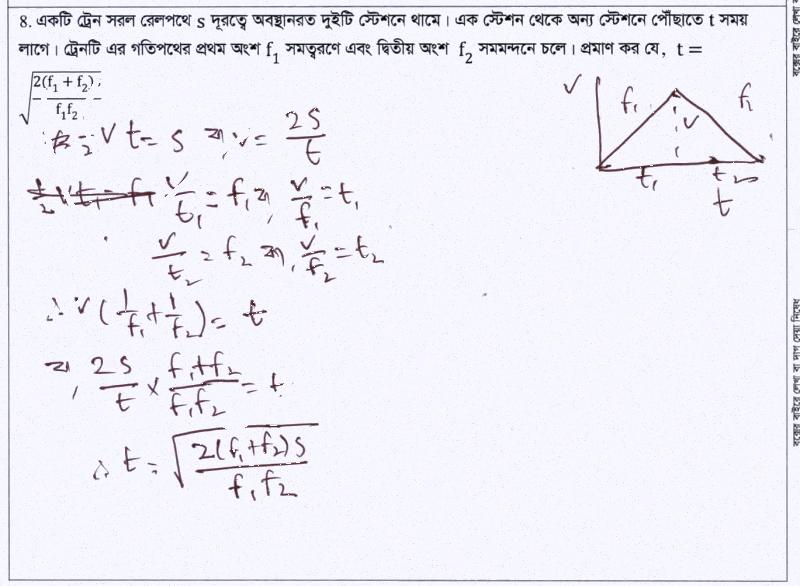 8. একটি ট্রেন সরল রেলপথে s দূরত্বে অবস্থানরত দুইটি স্টেশনে থামে। এক স্টেশন থেকে অন্য স্টেশনে পৌঁছাতে t সময়
লাগে। ট্রেনটি এর গতিপথের প্রথম অংশ f₁ সমত্বরণে এবং দ্বিতীয় অংশ f₂ সমমন্দনে চলে। প্রমাণ কর যে, t =
√(2(f₁ + f₂) / f₁f₂)
v f₁ v f₂
t₁ t₂
t
½ v t = s বা, v = 2s/t
v/t₁ = f₁ বা, v/f₁ = t₁
v/t₂ = f₂ বা, v/f₂ = t₂
∴ v (1/f₁ + 1/f₂) = t
বা, 2s/t × (f₁+f₂)/f₁f₂ = t
∴ t = √(2(f₁+f₂)s / f₁f₂)